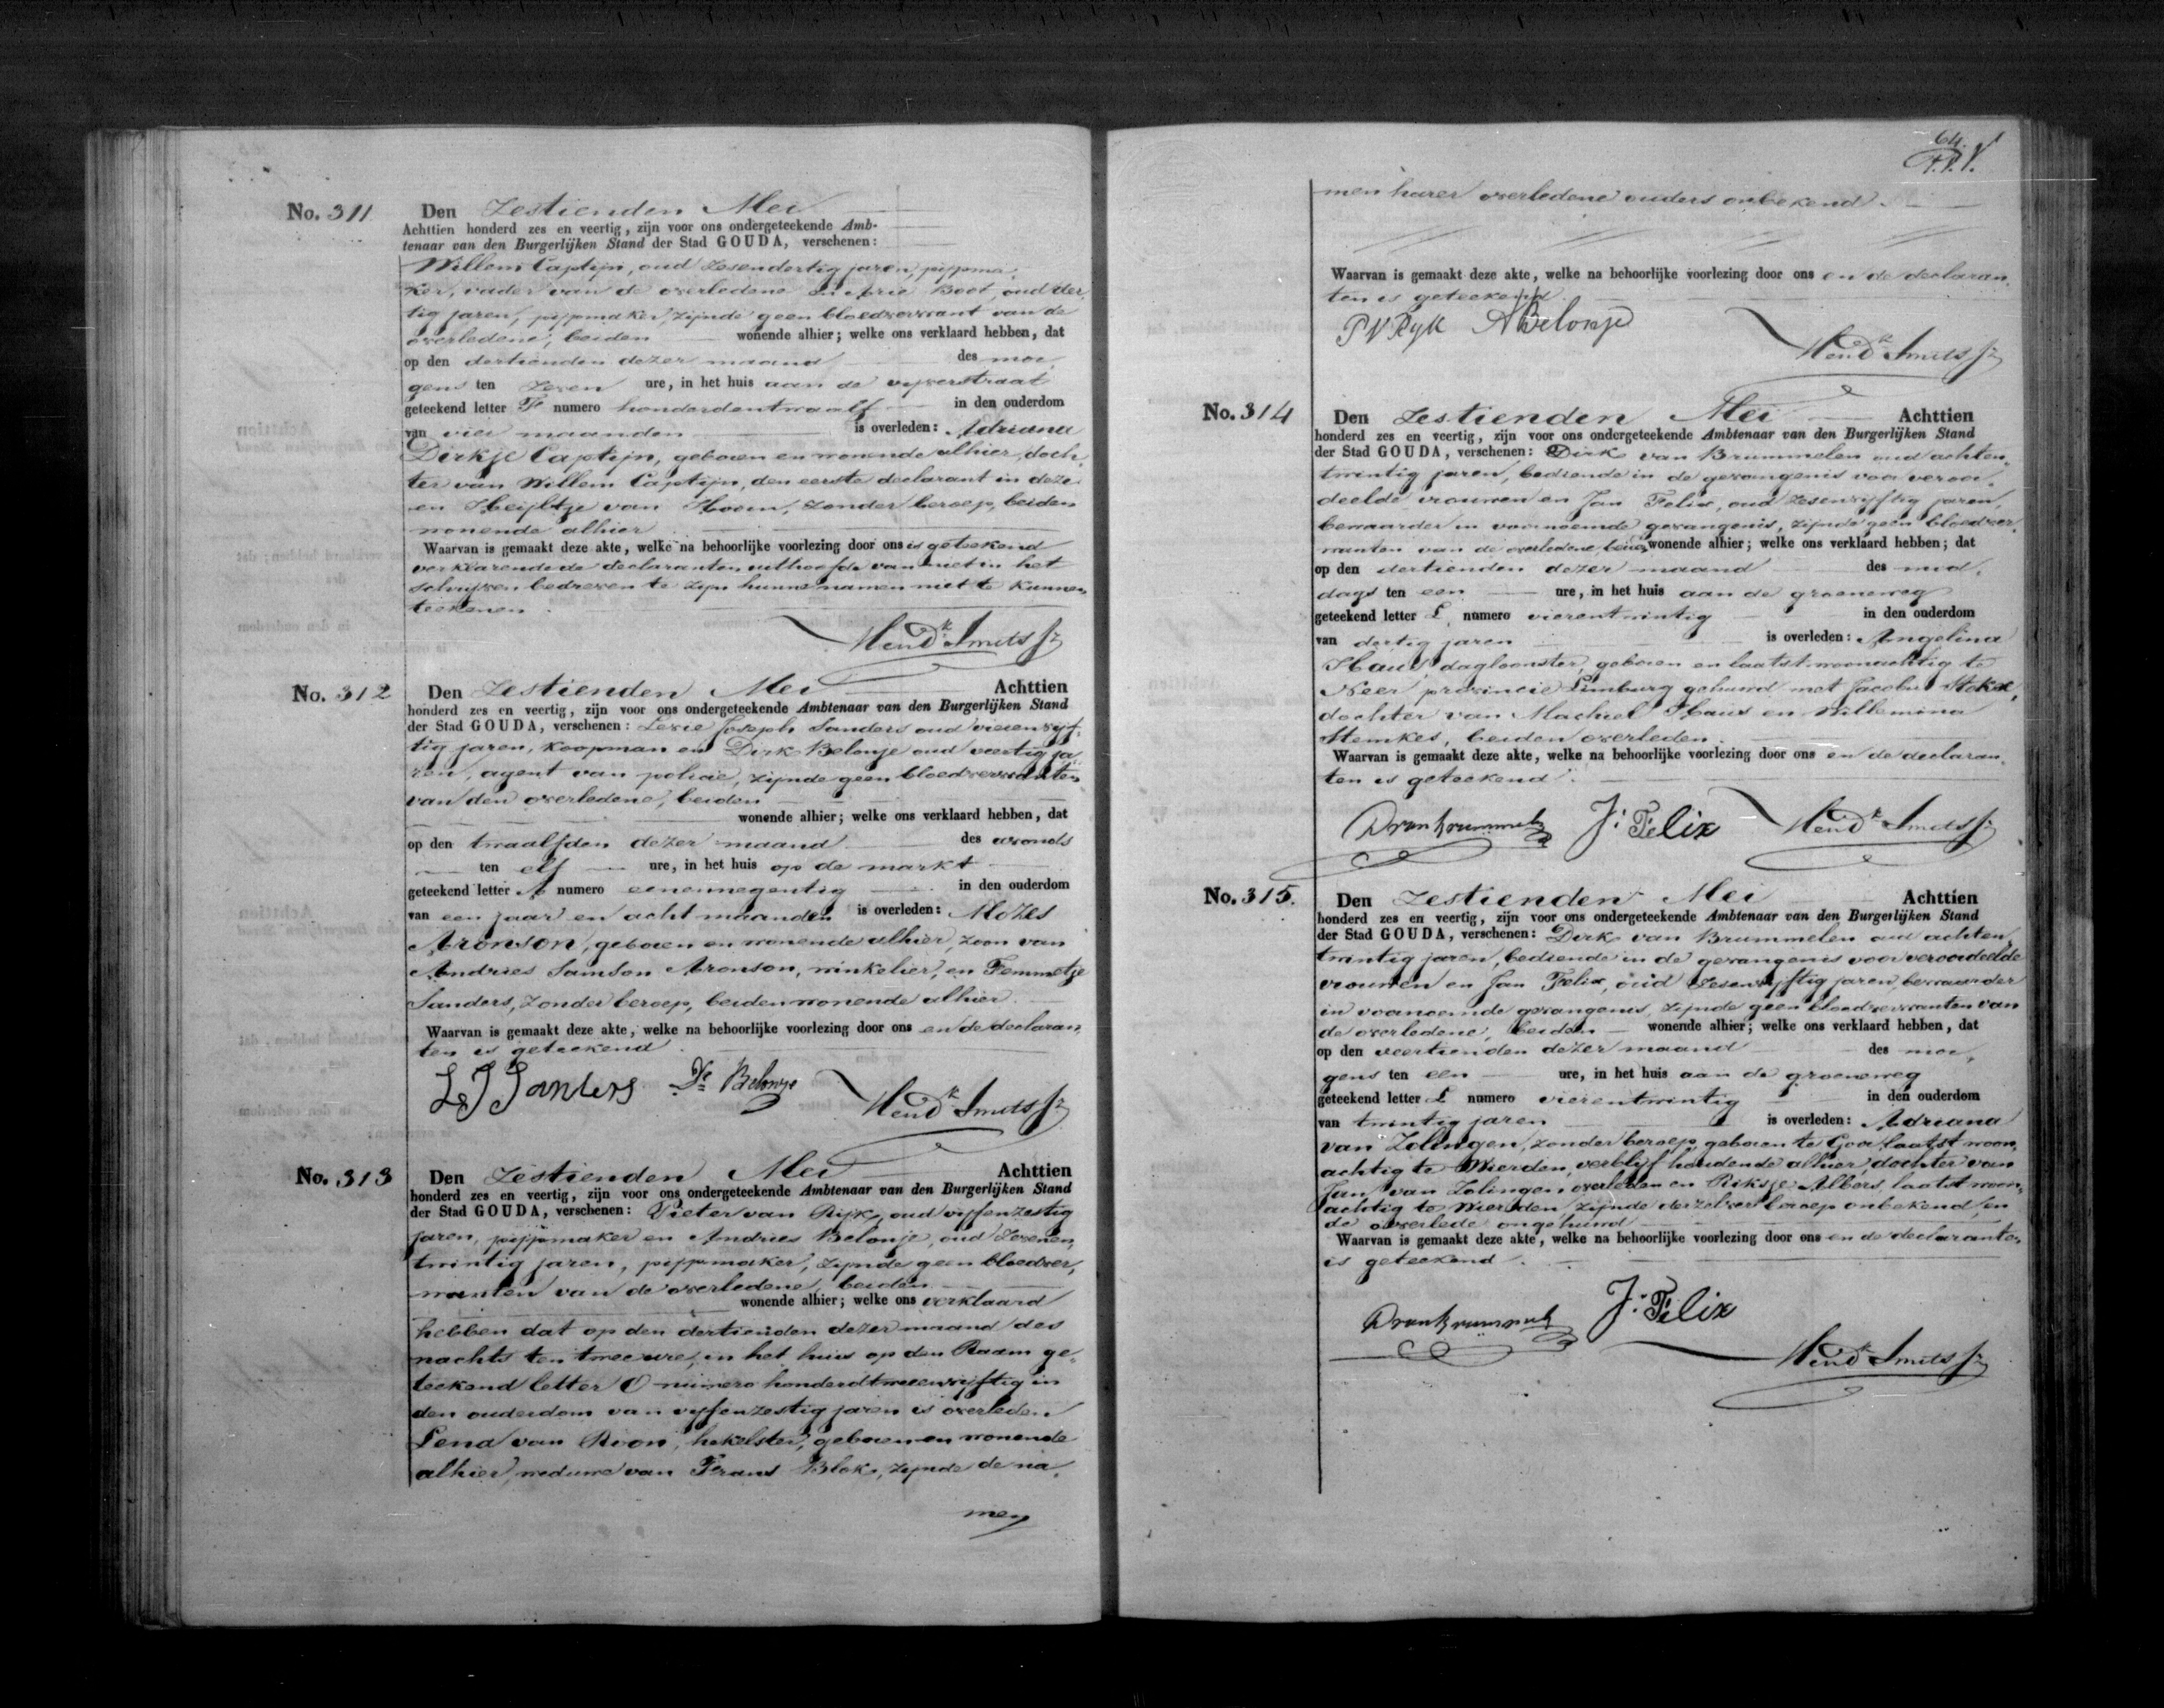 No. 311
Den Zestienden Mei
Achttien honderd zes en veertig, zijn voor ons ondergeteekende Amb-
tenaar van den Burgerlijken Stand der Stad GOUDA, verschenen:
Willem Captijn, oud zesendertig jaren, pijpma-
ker, vader van de overledene en Arie Boot, oud der-
tig jaren, pijpmaker, zijnde geen bloedverwant van de
overledene, beiden wonende alhier; welke ons verklaard hebben, dat
op den dertienden dezer maand des mor-
gens ten zeven ure, in het huis aan de vijverstraat
geteekend letter F numero honderdentwaalf in den ouderdom
van vier maanden is overleden: Adriana
Dirkje Captijn, geboren en wonende alhier, doch-
ter van Willem Captijn, den eerste declarant in deze
en Heijltje van Hoorn, zonder beroep, beiden
wonende alhier
Waarvan is gemaakt deze akte, welke na behoorlijke voorlezing door ons is geteekend
verklarende de declaranten uithoofde van niet in het
schrijven bedreven te zijn hunne namen niet te kunnen
teekenen.
Hendk Smits Jz
No. 312
Den Zestienden Mei Achttien
honderd zes en veertig, zijn voor ons ondergeteekende Ambtenaar van den Burgerlijken Stand
der Stad GOUDA, verschenen: Levie Joseph Sanders oud vierenvijf-
tig jaren, koopman en Dirk Belonje oud veertig ja-
ren, agent van policie, zijnde geen bloedverwanten
van den overledene, beiden
wonende alhier; welke ons verklaard hebben, dat
op den twaalfden dezer maand des avonds
ten elf ure, in het huis op de markt
geteekend letter A numero eenennegentig in den ouderdom
van een jaar en acht maanden is overleden: Mozes
Aronson, geboren en wonende alhier, zoon van
Andries Samson Aronson, winkelier, en Femmetje
Sanders, zonder beroep, beiden wonende alhier.
Waarvan is gemaakt deze akte, welke na behoorlijke voorlezing door ons en de declaran-
ten is geteekend
L J Sanders Dk Belonje Hendk Smits Jz
No. 313
Den Zestienden Mei Achttien
honderd zes en veertig, zijn voor ons ondergeteekende Ambtenaar van den Burgerlijken Stand
der Stad GOUDA, verschenen: Pieter van Rijk, oud vijfenzestig
jaren, pijpmaker en Andries Belonje, oud zevenen-
twintig jaren, pijpmaker, zijnde geen bloedver-
wanten van de overledene, beiden
wonende alhier; welke ons verklaard
hebben dat op den dertienden dezer maand des
nachts ten twee ure, in het huis op den Raam ge-
teekend letter O numero honderdtweeenvijftig in
den ouderdom van vijfenzestig jaren is overleden
Lena van Roon, hekelster, geboren en wonende
alhier, weduwe van Frans Blok, zijnde de na-
men
64.
men harer overledene ouders onbekend.
Waarvan is gemaakt deze akte, welke na behoorlijke voorlezing door ons en de declaran-
ten is geteekend.
P V Ryk ABelonje
Hendk Smits Jz
No. 314
Den Zestienden Mei Achttien
honderd zes en veertig, zijn voor ons ondergeteekende Ambtenaar van den Burgerlijken Stand
der Stad GOUDA, verschenen: Dirk van Brummelen oud achten-
twintig jaren, bediende in de gevangenis voor veroor-
deelde vrouwen en Jan Felix, oud zesenvijftig jaren,
bewaarder in voornoemde gevangenis, zijnde geen bloedver-
wanten van de overledene, beiden wonende alhier; welke ons verklaard hebben; dat
op den dertienden dezer maand des mid-
dags ten een ure, in het huis aan de groeneweg
geteekend letter L numero vierentwintig in den ouderdom
van dertig jaren is overleden: Angelina
Haus, dagloonster, geboren en laatst woonachtig te
Neer, provincie Limburg gehuwd met Jacobus
dochter van Machiel Haus en Willemina
Stemkes, beiden overleden.
Waarvan is gemaakt deze akte, welke na behoorlijke voorlezing door ons en de declaran-
ten is geteekend.
DvanBrummelen J: Felix Hendk Smits Jz
No. 315.
Den Zestienden Mei Achttien
honderd zes en veertig, zijn voor ons ondergeteekende Ambtenaar van den Burgerlijken Stand
der Stad GOUDA, verschenen: Dirk van Brummelen oud achten-
twintig jaren, bediende in de gevangenis voor veroordeelde
vrouwen en Jan Felix, oud zesenvijftig jaren, bewaarder
in voornoemde gevangenis, zijnde geen bloedverwanten van
de overledene, beiden wonende alhier; welke ons verklaard hebben, dat
op den veertienden dezer maand des mor-
gens ten een ure, in het huis aan de groeneweg
geteekend letter L numero vierentwintig in den ouderdom
van twintig jaren is overleden: Adriana
van Zolingen, zonder beroep, geboren te Goor laatst woon-
achtig te Wierden, verblijf houdende alhier, dochter van
Jan van Zolingen overleden en Riksje Albers, laatst woon-
achtig te Wierden zijnde derzelver beroep onbekend, en
de overlede ongehuwd
Waarvan is gemaakt deze akte, welke na behoorlijke voorlezing door ons en de declaranten
is geteekend.
DvanBrummelen J: Felix
Hendk Smits Jz